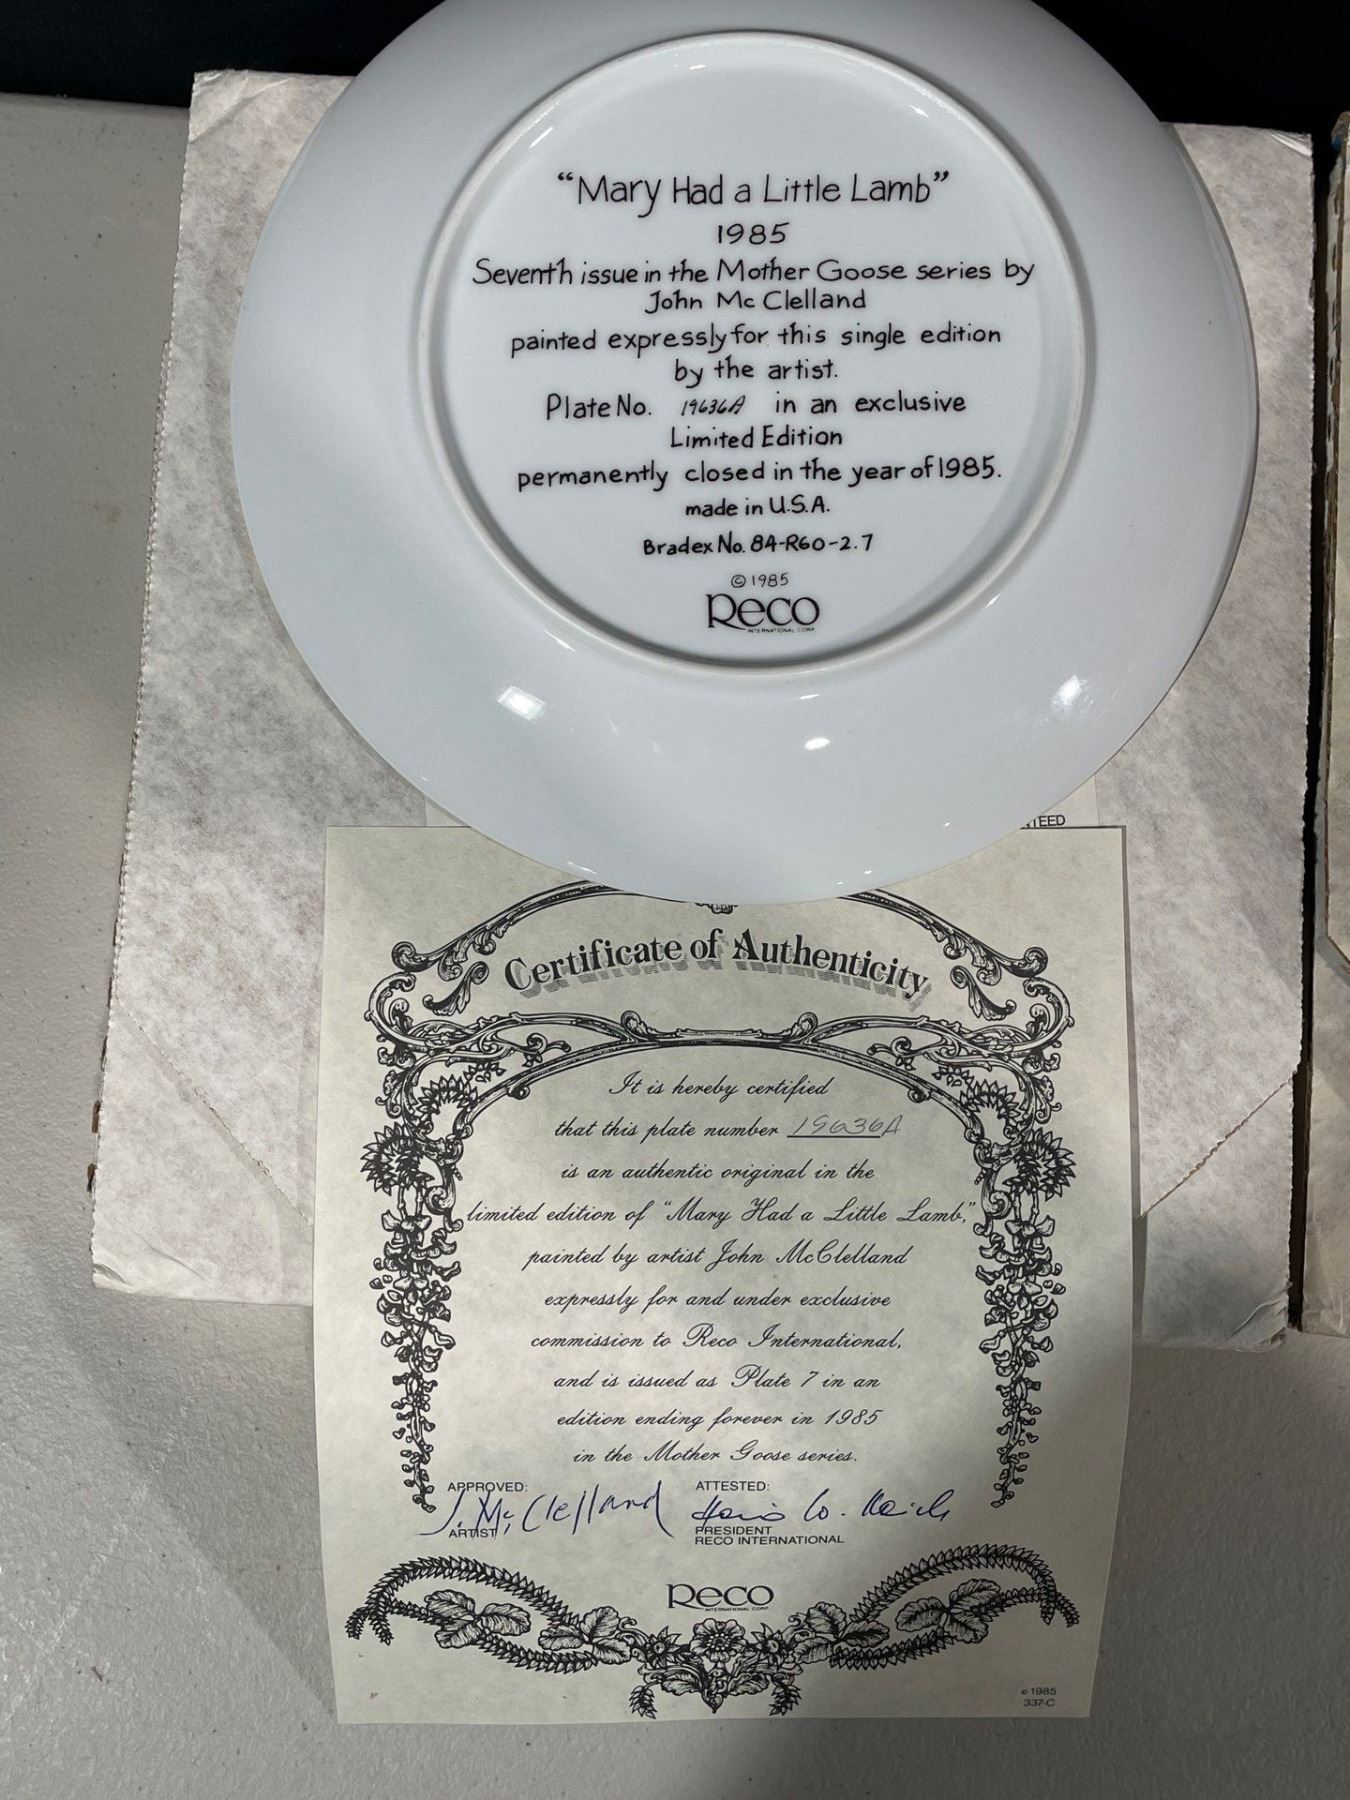 “Mary Had a Little Lamb”
1985
Seventh issue in the Mother Goose series by
John McClelland
painted expressly for this single edition
by the artist.
Plate No. 19636A in an exclusive
Limited Edition
permanently closed in the year of 1985.
made in U.S.A.
Bradex No. 84-R60-2.7
© 1985
Reco
INTERNATIONAL CORP.
Certificate of Authenticity
It is hereby certified
that this plate number 19636A
is an authentic original in the
limited edition of “Mary Had a Little Lamb,”
painted by artist John McClelland
expressly for and under exclusive
commission to Reco International,
and is issued as Plate 7 in an
edition ending forever in 1985
in the Mother Goose series.
APPROVED: ATTESTED:
J. McClelland
ARTIST PRESIDENT
RECO INTERNATIONAL
Reco
INTERNATIONAL CORP.
© 1985
337-C